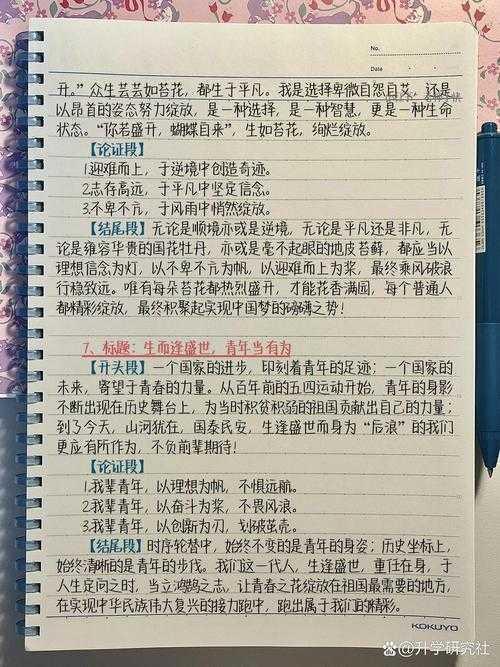 No.
Date
开。”众生芸芸如苔花，都生于平凡。我是选择卑微自怨自艾，还是
以昂首的姿态努力绽放，是一种选择，是一种智慧，更是一种生命
状态。“你若盛开，蝴蝶自来”，生如苔花，绚烂绽放。
【论证段】
1.迎难而上，于逆境中创造奇迹。
2.志存高远，于平凡中坚定信念。
3.不卑不亢，于风雨中悄然绽放。
【结尾段】无论是顺境亦或是逆境，无论是平凡还是非凡，无
论是雍容华贵的国花牡丹，亦或是毫不起眼的地皮苔藓，都应当以
理想信念为灯，以不卑不亢为帆，以迎难而上为桨，最终乘风破浪
行稳致远。唯有每朵苔花都热烈盛开，才能花香满园，每个普通人
都精彩绽放，最终积聚起实现中国梦的磅礴之势！
7、标题：生而逢盛世，青年当有为
【开头段】一个国家的进步，印刻着青年的足迹；一个国家的
未来，寄望于青春的力量。从百年前的五四运动开始，青年的身影
不断出现在历史舞台上，为当时积贫积弱的祖国贡献出自己的力量；
到了今天，山河犹在，国泰民安，生逢盛世而身为“后浪”的我们
更应有所作为，不负前辈期待！
【论证段】
1.我辈青年，以理想为帆，不惧远航。
2.我辈青年，以奋斗为桨，不畏风浪。
3.我辈青年，以创新为刃，划破茧壳。
【结尾段】时序轮替中，始终不变的是青年的身姿；历史坐标上，
始终清晰的是青年的步伐。我们这一代人，生逢盛世，重任在身，于
人生定向之时，当立鸿鹄之志，让青春之花绽放在祖国最需要的地方，
在实现中华民族伟大复兴的接力跑中，跑出属于我们的精彩。
KOKUYO
升学研究社